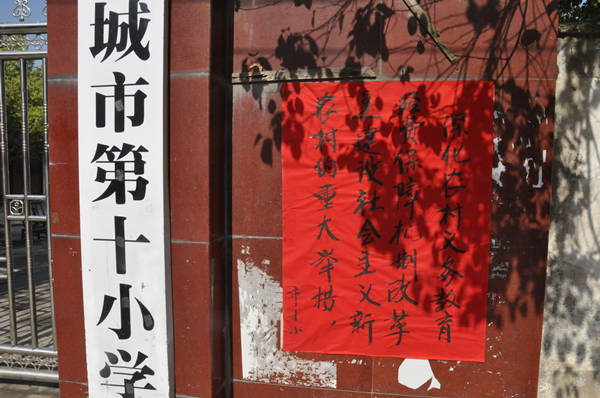 城市第十小学
深化农村义务教育
经费保障机制改革
是建设社会主义新
农村的重大举措，
市十小